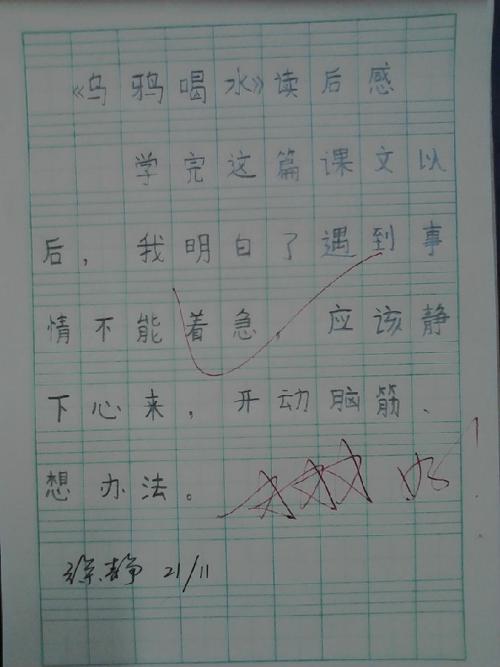 《乌鸦喝水》读后感
学完这篇课文以
后，我明白了遇到事
情不能着急，应该静
下心来，开动脑筋、
想办法。
徐静 21/11